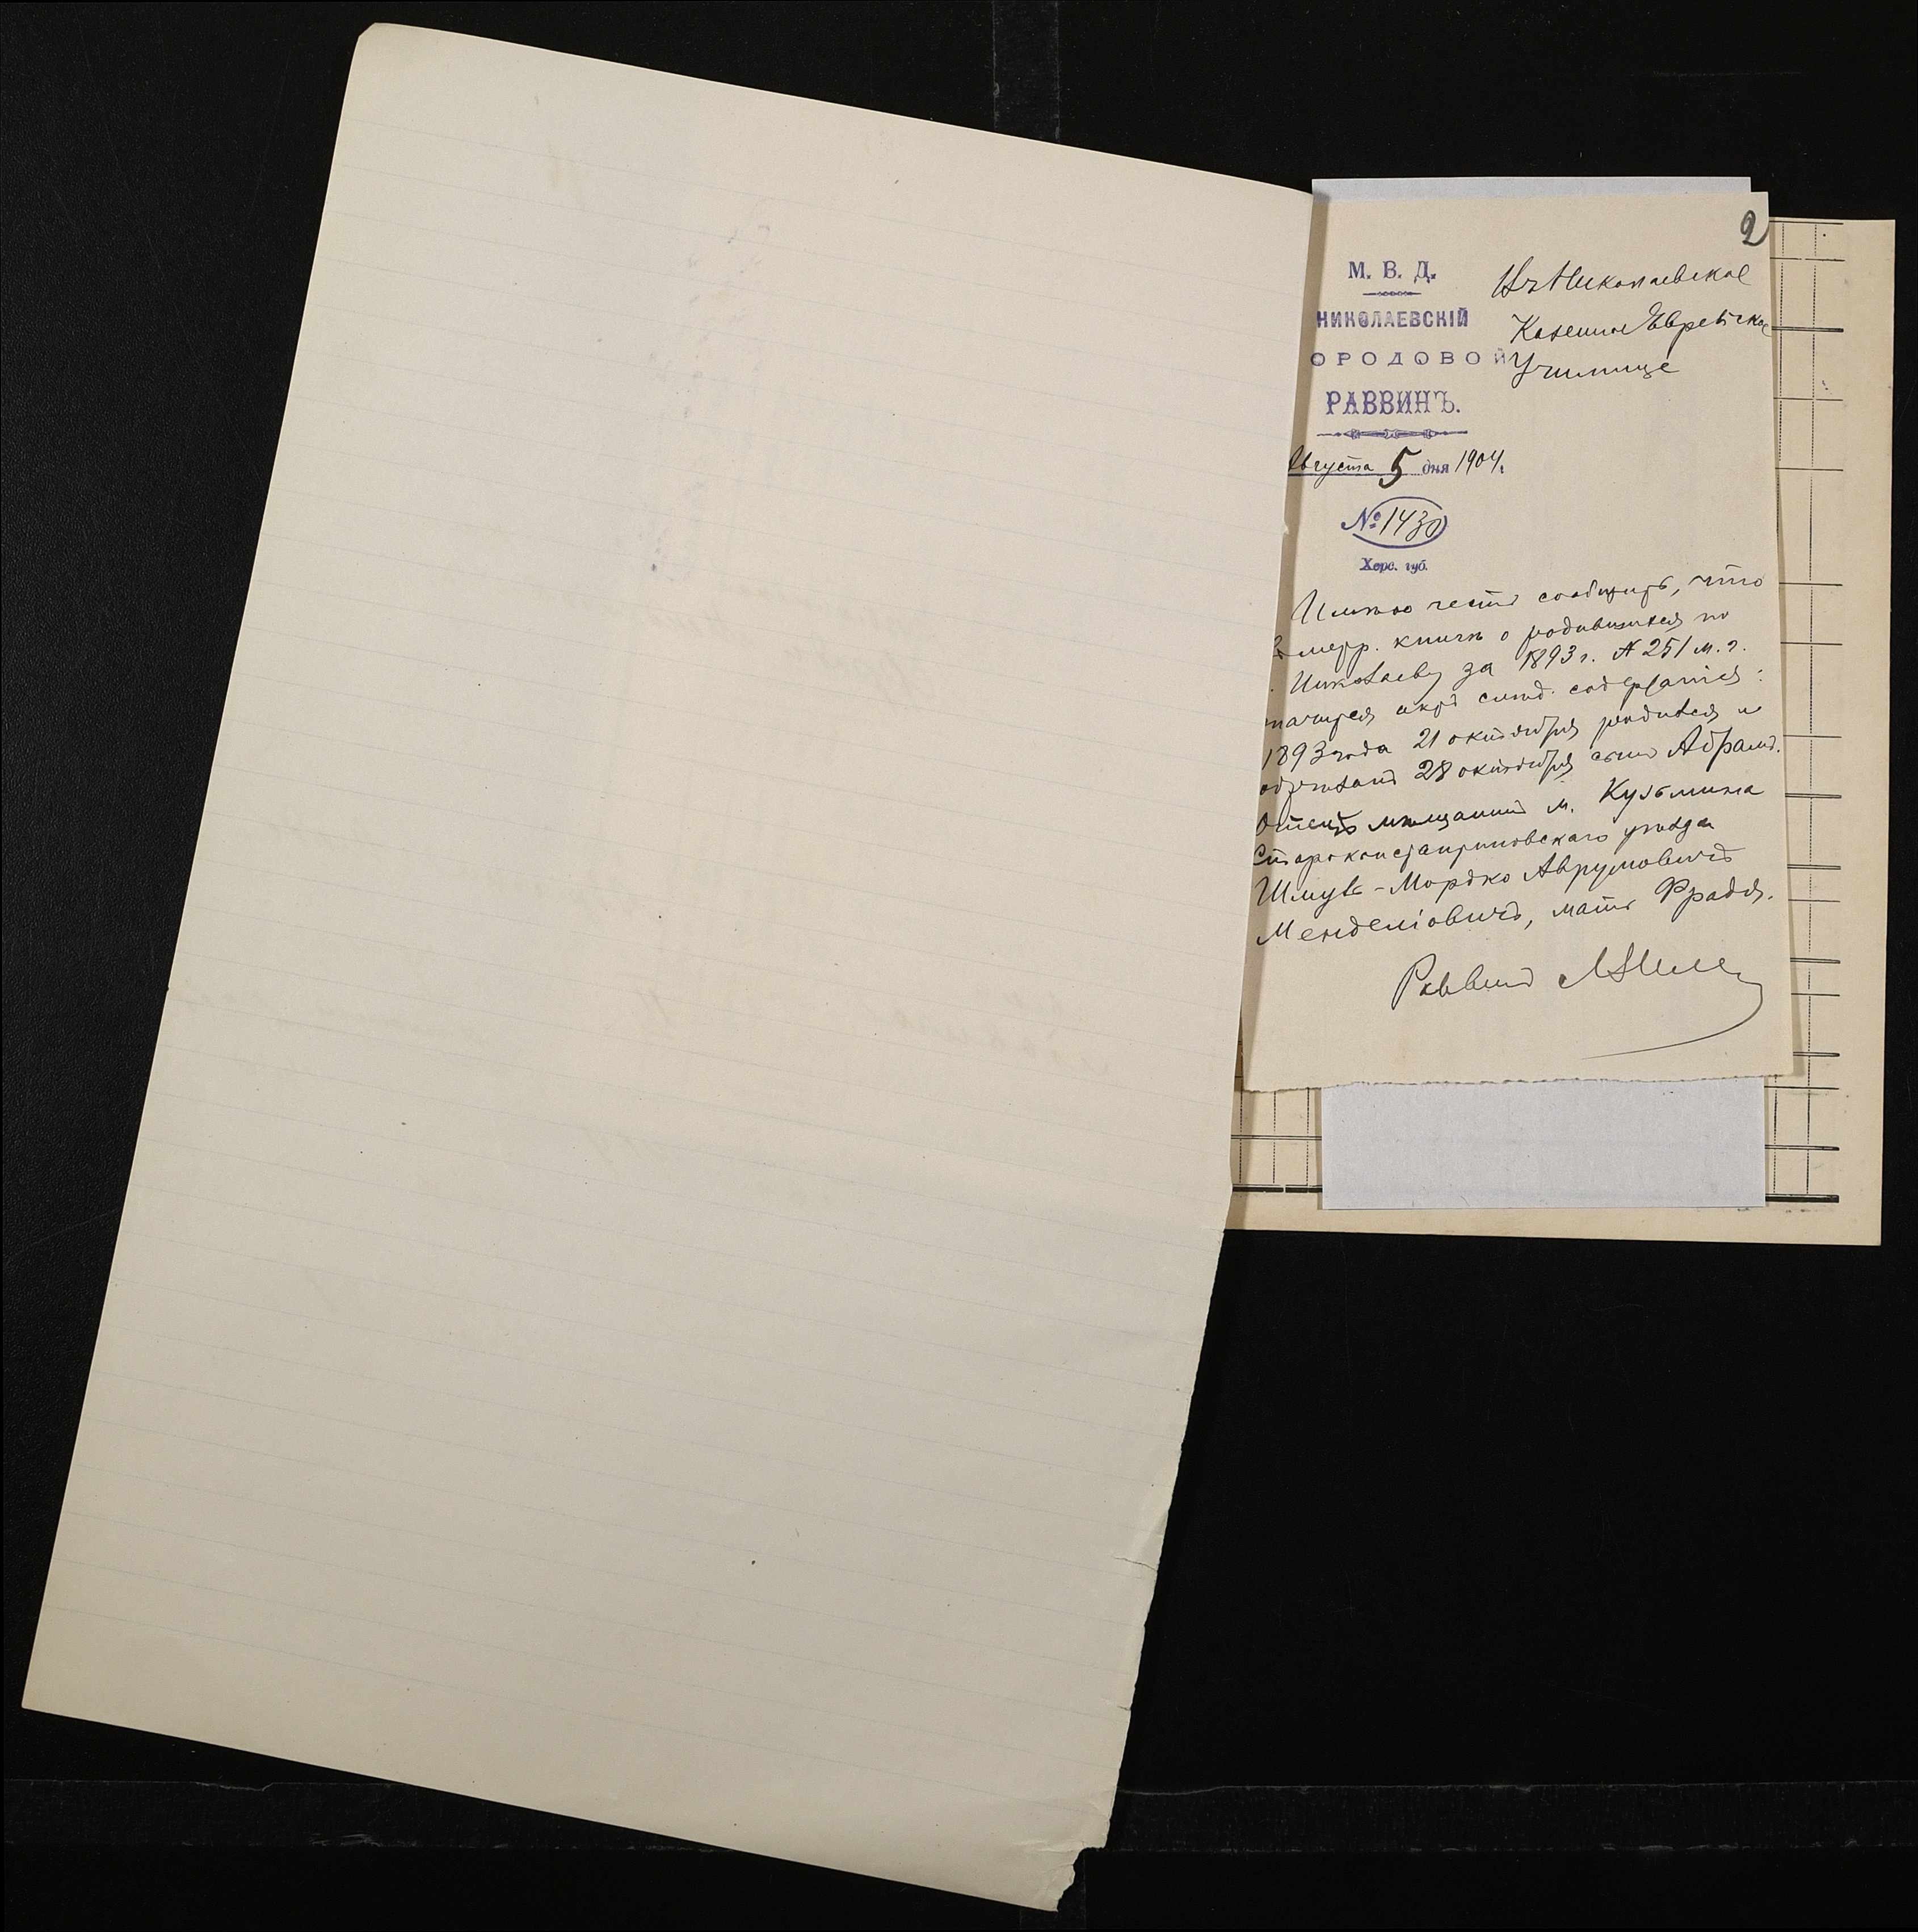 2
М. В. Д.
НИКОЛАЕВСКІЙ
ОРОДОВОЙ
РАВВИНЪ.
Августа 5 дня 1904 г.
№ 1430
Херс. губ.
Въ Николаевское
Казенное Еврейское
Училище
Имѣю честь сообщить, что
въ метр. книгѣ о родившихся по
г. Николаеву за 1893 г. № 251 м. г.
значится актъ слѣд. содержанія:
1893 года 21 октября родился и
обрѣзанъ 28 октября сынъ Абрамъ.
Отецъ мѣщанинъ м. Кузьмина
Староконстантиновскаго уѣзда
Шмуль-Мордко Аврумовичъ
Менделіовичъ, мать Фрадя.
Раввинъ